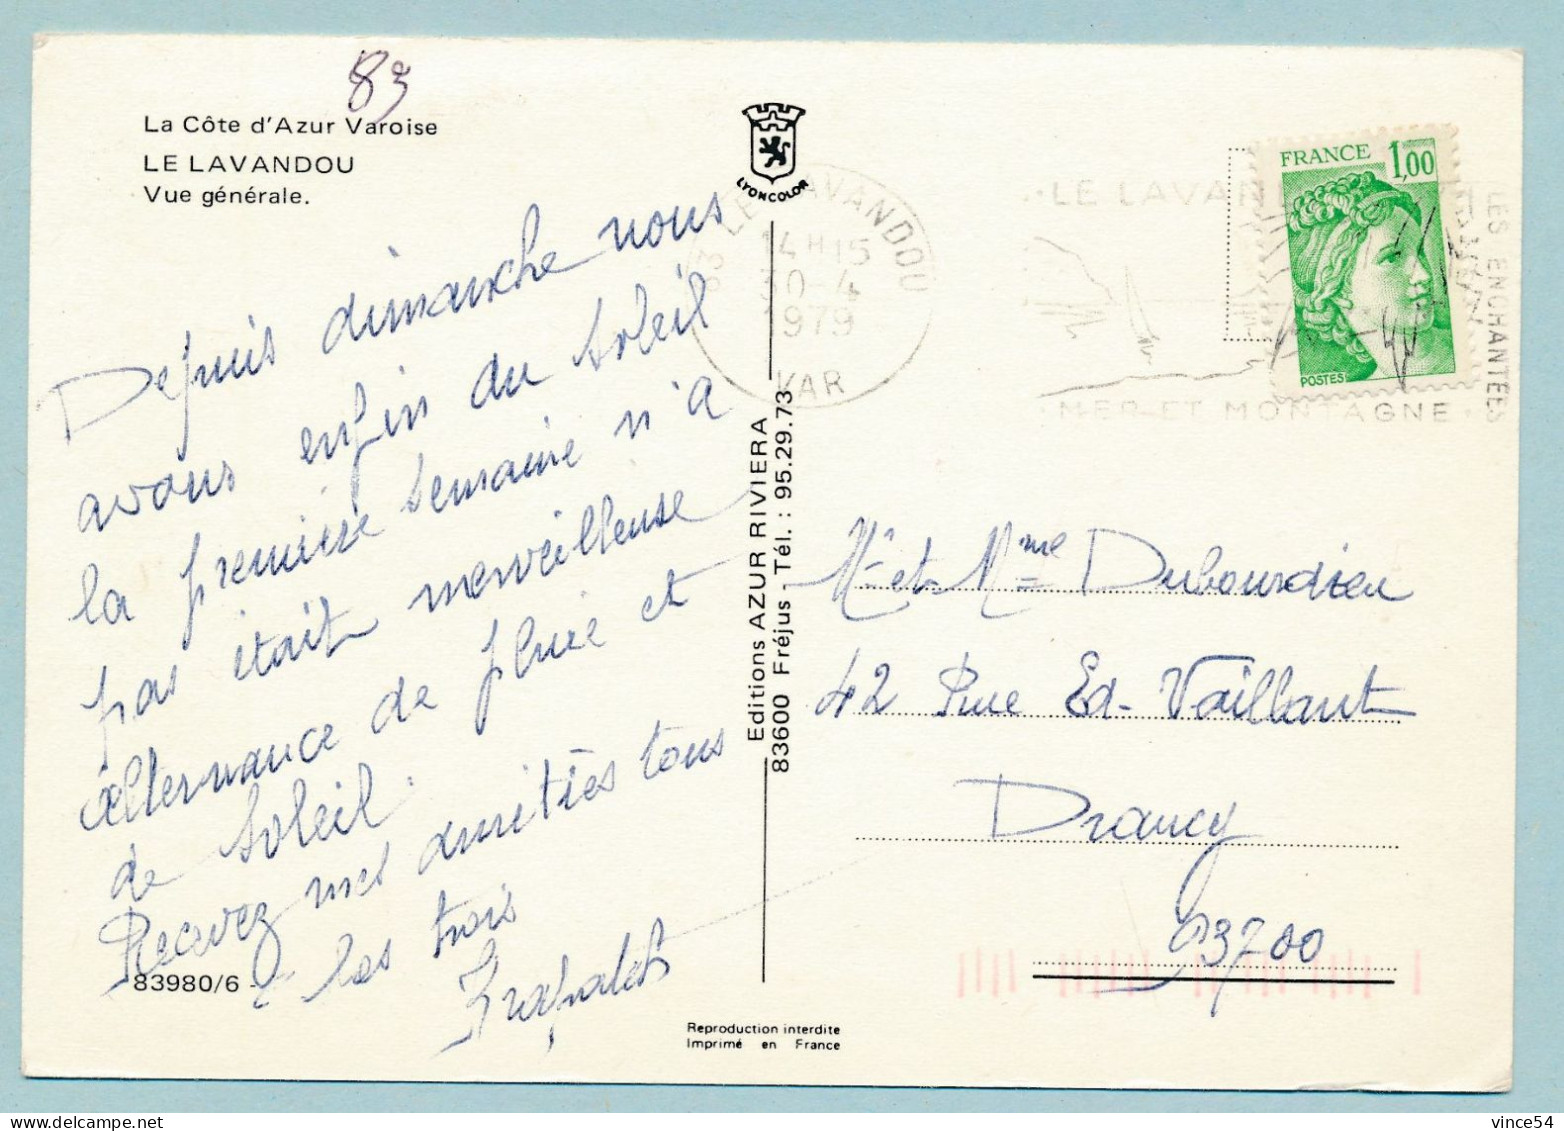 83
La Côte d'Azur Varoise
LE LAVANDOU
Vue générale.
LYONCOLOR
Depuis dimanche nous
avons enfin du soleil
la première semaine n'a
pas était merveilleuse
alternance de pluie et
de soleil.
Recevez mes amitiés tous
les trois
83980/6
Editions AZUR RIVIERA
83600 Fréjus - Tél. : 95.29.73
Reproduction interdite
Imprimé en France
83 LE LAVANDOU
14 H 15
30-4
1979
VAR
LE LAVAN
LES ENCHANTÉES
MER ET MONTAGNE
FRANCE 1,00
POSTES
Mr et Mme Dubourdieu
42 Rue Ed-Vaillant
Drancy
93700
vince54